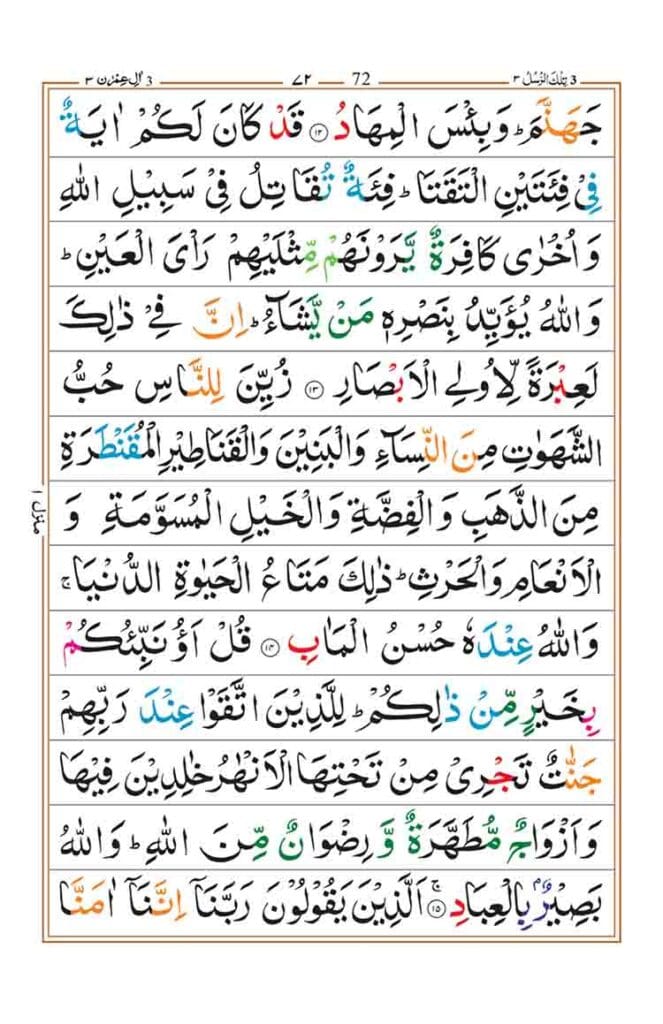 3 تِلْكَ الرُّسُلُ ٣
72 ٧٢
3 اٰلِ عِمْرٰن ٣
جَهَنَّمَ ؕ وَبِئْسَ الْمِهَادُ ﴿۱۲﴾ قَدْ كَانَ لَكُمْ اٰيَةٌ
فِىْ فِئَتَيْنِ الْتَقَتَا ؕ فِئَةٌ تُقَاتِلُ فِىْ سَبِيْلِ اللّٰهِ
وَاُخْرٰى كَافِرَةٌ يَّرَوْنَهُمْ مِّثْلَيْهِمْ رَاْىَ الْعَيْنِ ؕ
وَاللّٰهُ يُؤَيِّدُ بِنَصْرِهٖ مَنْ يَّشَآءُ ؕ اِنَّ فِىْ ذٰلِكَ
لَعِبْرَةً لِّاُولِى الْاَبْصَارِ ﴿۱۳﴾ زُيِّنَ لِلنَّاسِ حُبُّ
الشَّهَوٰتِ مِنَ النِّسَآءِ وَالْبَنِيْنَ وَالْقَنَاطِيْرِ الْمُقَنْطَرَةِ
مِنَ الذَّهَبِ وَالْفِضَّةِ وَالْخَيْلِ الْمُسَوَّمَةِ وَ
الْاَنْعَامِ وَالْحَرْثِ ؕ ذٰلِكَ مَتَاعُ الْحَيٰوةِ الدُّنْيَا ۚ
وَاللّٰهُ عِنْدَهٗ حُسْنُ الْمَاٰبِ ﴿۱۴﴾ قُلْ اَؤُنَبِّئُكُمْ
بِخَيْرٍ مِّنْ ذٰلِكُمْ ؕ لِلَّذِيْنَ اتَّقَوْا عِنْدَ رَبِّهِمْ
جَنّٰتٌ تَجْرِىْ مِنْ تَحْتِهَا الْاَنْهٰرُ خٰلِدِيْنَ فِيْهَا
وَاَزْوَاجٌ مُّطَهَّرَةٌ وَّرِضْوَانٌ مِّنَ اللّٰهِ ؕ وَاللّٰهُ
بَصِيْرٌۢ بِالْعِبَادِ ۚ﴿۱۵﴾ اَلَّذِيْنَ يَقُوْلُوْنَ رَبَّنَاۤ اِنَّنَاۤ اٰمَنَّا
منزل ١